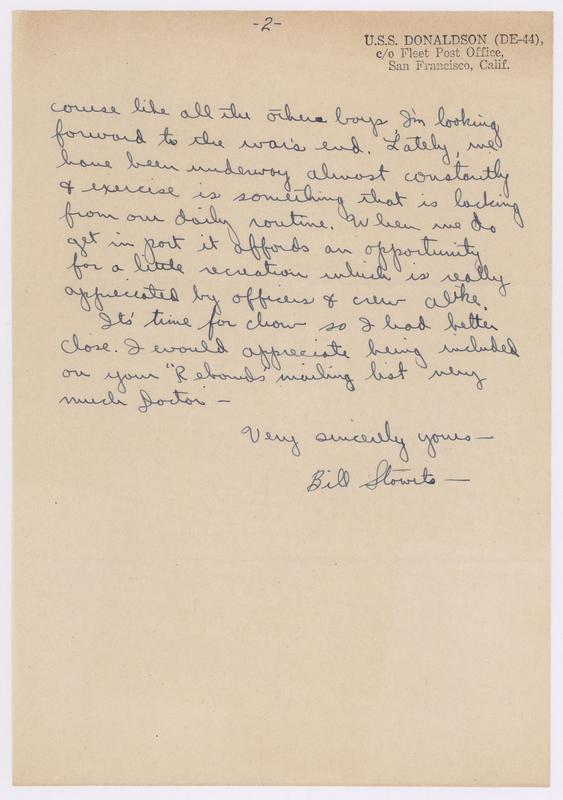 -2-
U.S.S. DONALDSON (DE-44),
c/o Fleet Post Office,
San Francisco, Calif.
course like all the others boys, I'm looking
forward to the war's end. Lately, we
have been underway almost constantly
& exercise is something that is lacking
from our daily routine. When we do
get in port it affords an opportunity
for a little recreation which is really
appreciated by officers & crew alike.
Its' time for chow so I had better
close. I would appreciate being included
on your "Rebounds" mailing list very
much Doctor -
Very sincerely yours -
Bill Stowits -